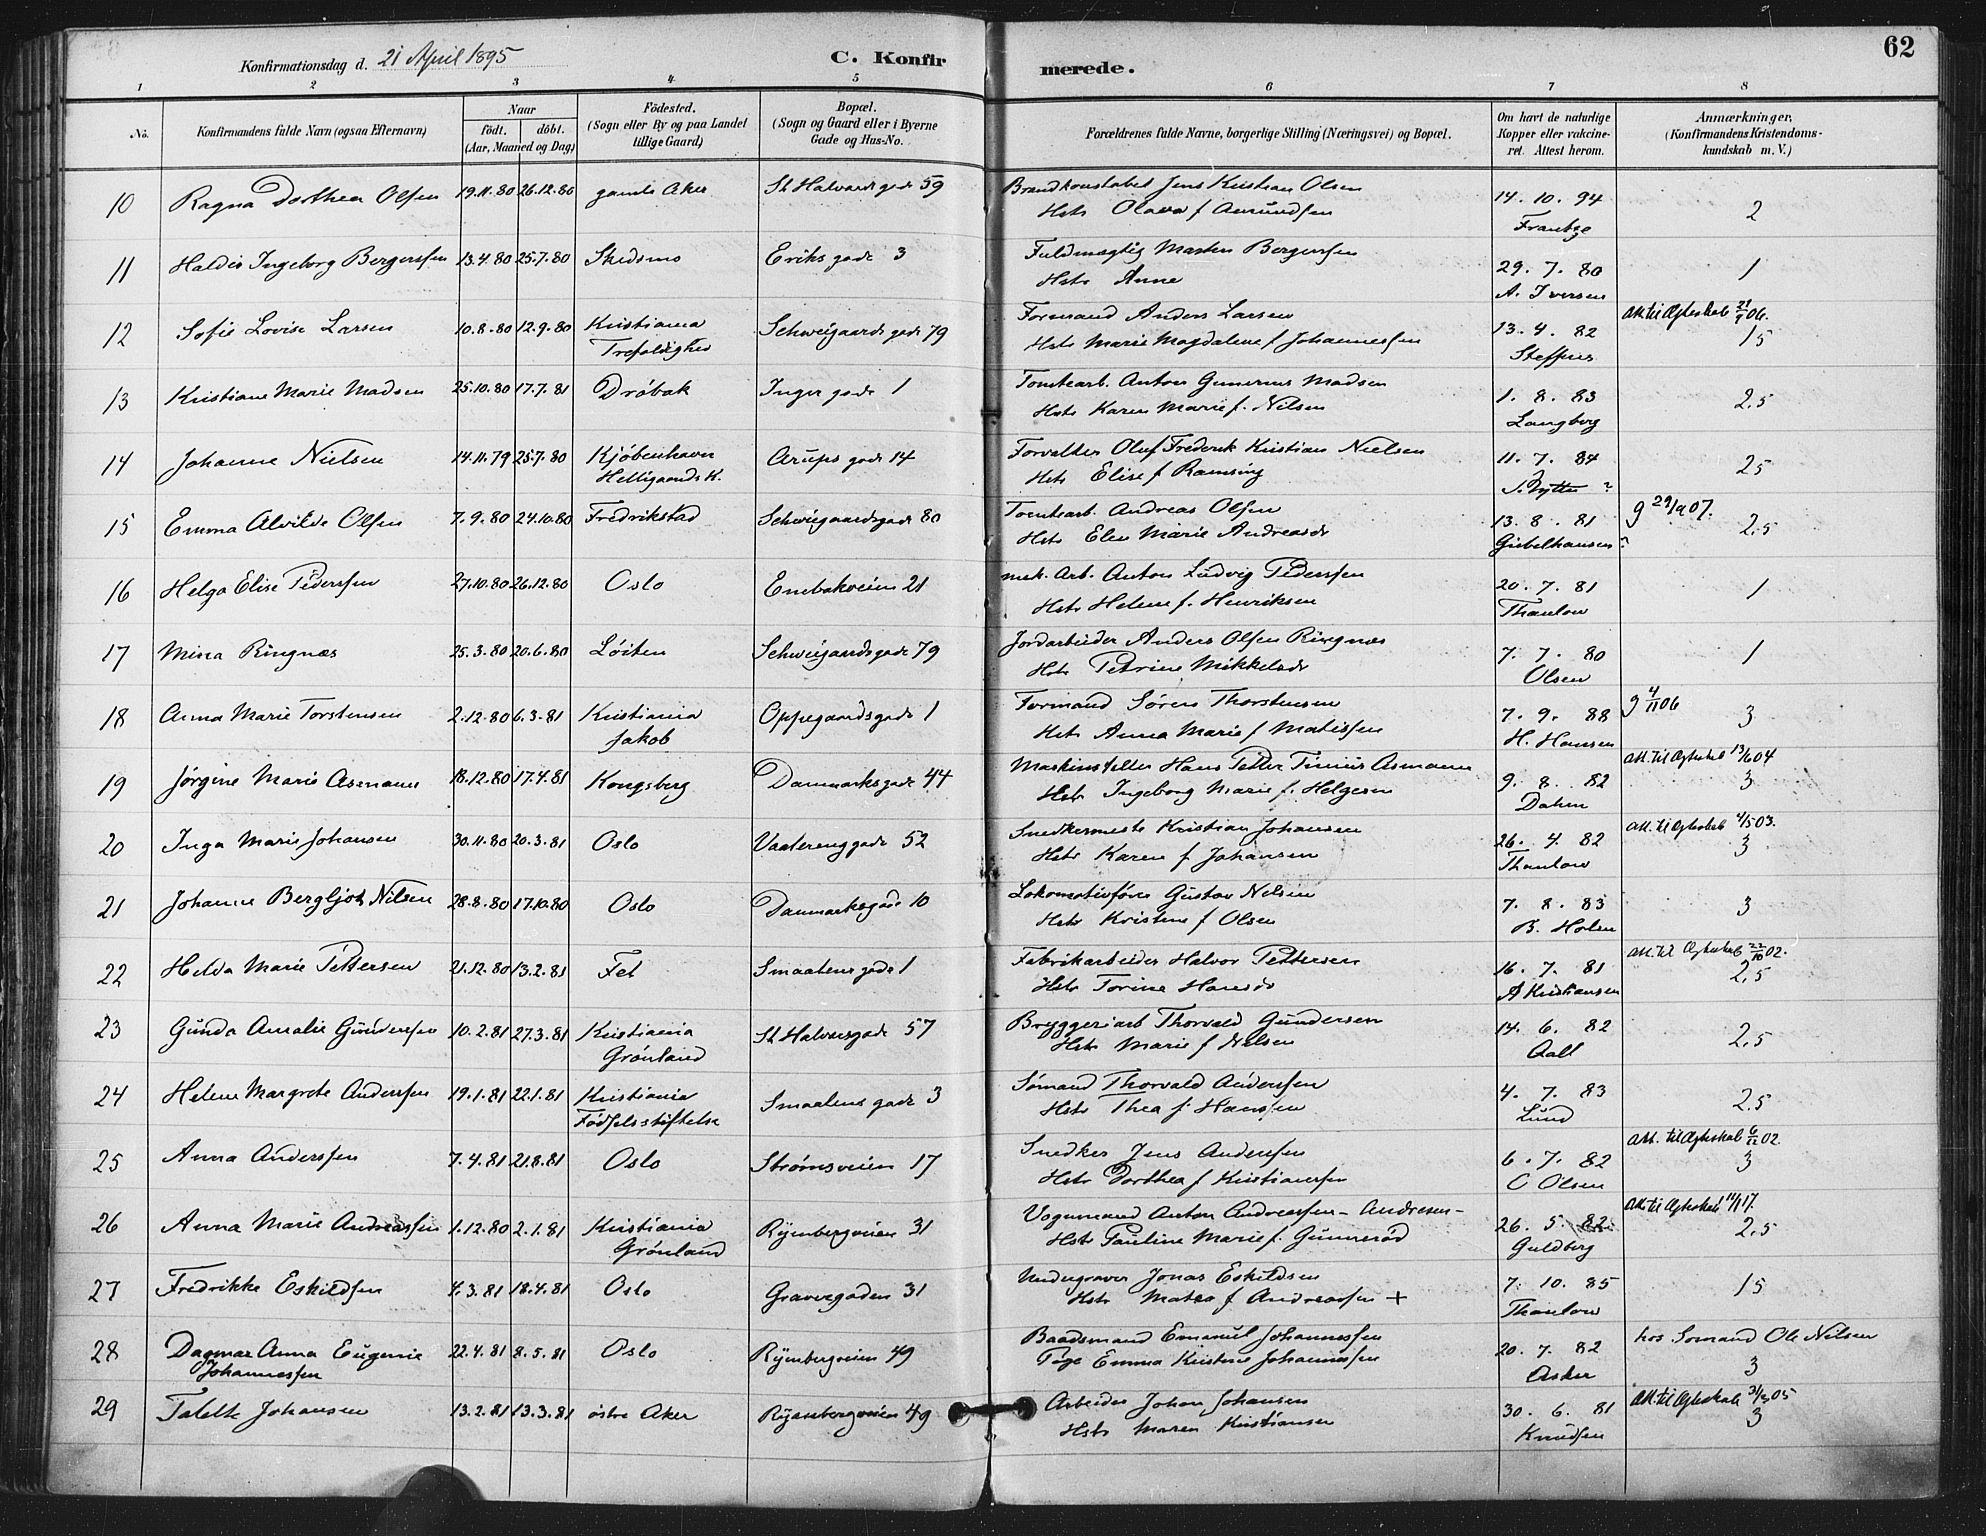 62
Konfirmationsdag d. 21 April 1895
C. Konfirmerede.
1 2 3 4 5 6 7 8
No.
Konfirmandens fulde Navn (ogsaa Efternavn)
Naar
født. døbt.
(Aar, Maaned og Dag)
Fødested.
(Sogn eller By og paa Landet
tillige Gaard)
Bopæl.
(Sogn og Gaard eller i Byerne
Gade og Hus-No.
Forældrenes fulde Navne, borgerlige Stilling (Næringsvei) og Bopæl.
Om havt de naturlige
Kopper eller vakcine-
ret. Attest herom.
Anmærkninger,
(Konfirmandens Kristendoms-
kundskab m. V.)
10 Ragna Dorthea Olsen 19.11.80 26.12.80 gamle Aker St Halvards gade 59 Brandkonstabel Jens Kristian Olsen 14. 10. 94
Hstr Olava f Amundsen Frantze 2
11 Haldis Ingeborg Bergersen 13.4.80 25.7.80 Skedsmo Eriks gade 3 Fuldmægtig Martin Bergersen 29. 7. 80 1
Hstr Anne A. Iversen
12 Sofie Lovise Larsen 10.8.80 12.9.80 Kristiania Schweigaards gade 79 Formand Anders Larsen 13. 4. 82 att til Ægteskab 21/9 06.
Trefoldighed Hstr Marie Magdalene f Johannessen Steffens 1,5
13 Kristiane Marie Madsen 25.10.80 17.7.81 Drøbak Inger gade 1 Tomtearb. Anton Gunerius Madsen 1. 8. 83 2,5
Hstr Karen Marie f. Nilsen Langberg
14 Johanne Nielsen 14.11.79 25.7.80 Kjøbenhavn Arups gade 14 Forvalter Oluf Frederik Kristian Nielsen 11. 7. 84 2,5
Helligaands K. Hstr Elise f Ramsing J. Rytter ?
15 Emma Alvilde Olsen 7.9.80 24.10.80 Fredrikstad Schweigaardsgade 80 Tomtearb. Andreas Olsen 13. 8. 81 g 29/9 07.
Hstr Elen Marie Andreasdr Giebelhausen ? 2,5
16 Helga Elise Pedersen 27.10.80 26.12.80 Oslo Enebakveien 21 mek. Arb. Anton Ludvig Pedersen 20. 7. 81 1
Hstr Helene f. Henriksen Thaulow
17 Mina Ringnæs 25.3.80 20.6.80 Løiten Schweigaardsgade 79 Jordarbeider Anders Olsen Ringnæs 7. 7. 80 1
Hstr Petrine Mikkelsdr Olsen
18 Anna Marie Torstensen 2.12.80 6.3.81 Kristiania Oppegaardsgade 1 Formand Søren Thorstensen 7. 9. 88 g 4/11 06
Jakob Hstr Anna Marie f Matissen H. Hansen 3
19 Jørgine Marie Asmann 18.12.80 17.4.81 Kongsberg Danmarksgade 44 Maskinsteller Hans Petter Tinius Asmann 9. 8. 82 att. til Ægteskab 13/6 04
Hstr Ingeborg Marie f. Helgesen Dahm 3
20 Inga Marie Johansen 30.11.80 20.3.81 Oslo Vaaterenggade 52 Snedkermester Kristian Johansen 26. 4. 82 att. til Ægteskab 4/5 03.
Hstr Karen f Johansen Thaulow 3
21 Johanne Bergljot Nilsen 28.8.80 17.10.80 Oslo Danmarksgade 10 Lokomotivfører Gustav Nilsen 7. 8. 83 3
Hstr Kristine f Olsen B. Holm
22 Helda Marie Pettersen 21.12.80 13.2.81 Fet Smaalens gade 1 Fabrikarbeider Halvor Pettersen 16. 7. 81 att. til Ægteskab 22/10 02.
Hstr Torine Hansdr A Kristiansen 2,5
23 Gunda Amalie Gundersen 10.2.81 27.3.81 Kristiania St Halvarsgade 57 Bryggeriarb Thorvald Gundersen 14. 6. 82 2,5
Grønland Hstr Marie f Nilsen Aall
24 Helene Margrete Andersen 19.1.81 22.1.81 Kristiania Smaalens gade 3 Sømand Thorvald Andersen 4. 7. 83 2,5
Fødselsstiftelse Hstr Thea f. Hanssen Lund
25 Anna Andersen 7.4.81 21.8.81 Oslo Strømsveien 17 Snedker Jens Andersen 6. 7. 82 att. til Ægteskab 6/12 02.
Hstr Dorthea f Kristiansen C Olsen 3
26 Anna Marie Andreassen 1.12.80 2.1.81 Kristiania Ryenbergveien 31 Vognmand Anton Andreassen - Andresen - 26. 5. 82 att. til Ægteskab 11/1 17.
Grønland Hstr Pauline Marie f. Gunnerød Guldberg 2,5
27 Fredrikke Eskildsen 4.3.81 18.4.81 Oslo Gravergaden 31 Undergraver Jonas Eskildsen 7. 10. 85 1,5
Hstr Matea f Andreassen + Thaulow
28 Dagmar Anna Eugenie 22.4.81 8.5.81 Oslo Ryenbergveien 49 Baadsmand Emanuel Johannessen 20. 7. 82 hos Sømand Ole Nilsen
Johannessen Pige Emma Kristine Johannessen Asker 3
29 Talette Johansen 13.2.81 13.3.81 østre Aker Ryenbergveien 49 Arbeider Johan Johansen 30. 6. 81 att. til Ægteskab 31/3 05
Hstr Maren Kristiansen Knudsen 3